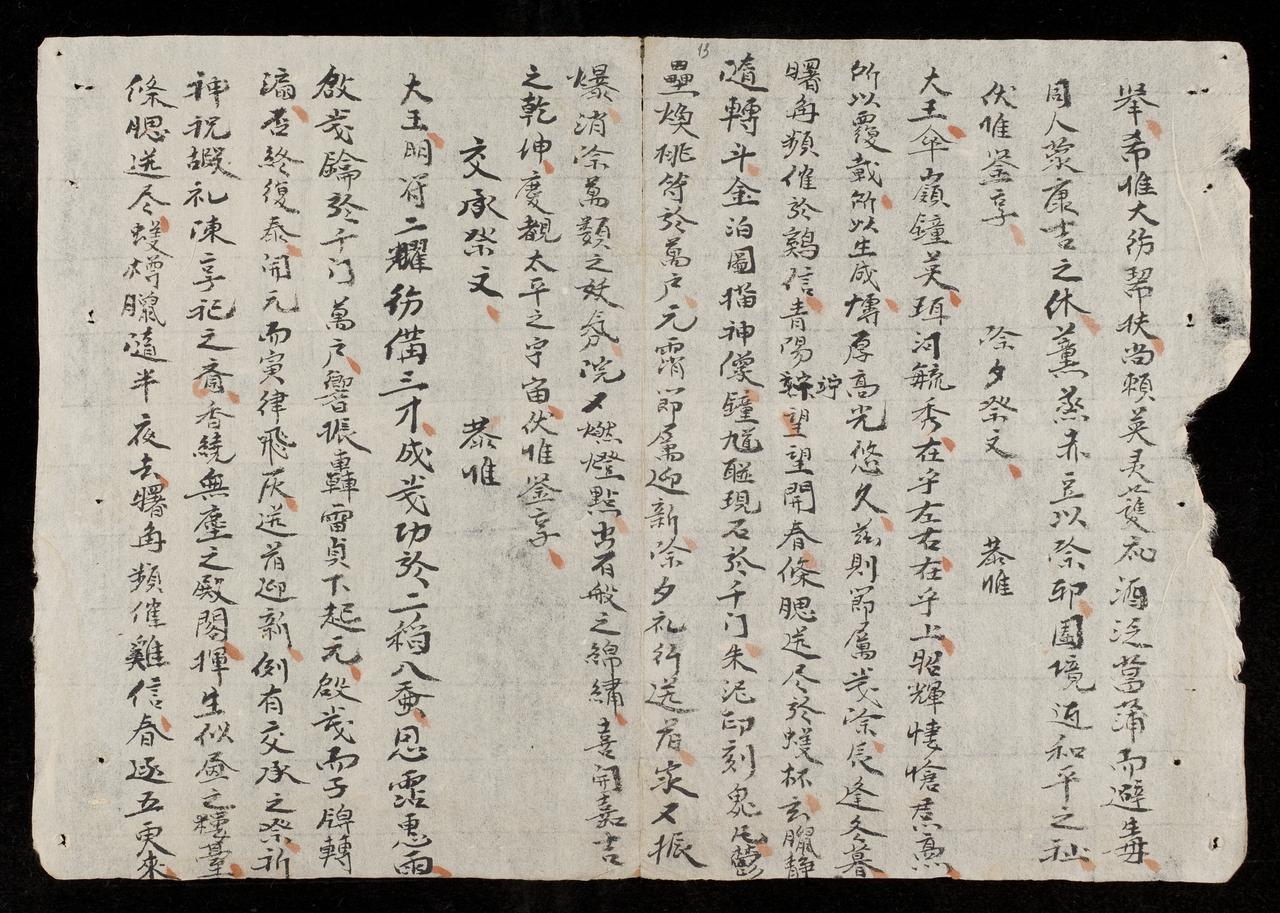 13
举希惟大彷帮扶尚頼英灵護庇酒泛菖蒲而避毒
同人蒙康吉之休薰蒸赤豆以除卯圖境迓和平之祉
伏惟鉴享 除夕祭文 恭惟
大王傘嶺鐘英珥河毓秀在乎左右在乎上昭輝悽愴焄蒿
所以覆載所以生成博厚高光悠久茲則節屬歲除辰逢冬暮
曙角頻催於鷄信青陽竚望望開春條腮送尽於蟻杯玄臘静
隨轉斗金泊圖描神像鐘馗聪現石於千门朱泥印刻鬼尾欝
壘煥桃符於萬戶元霄節屬迎新除夕礼行送旧家々振
爆消除萬類之妖氛院々燃燈點出百般之綿繡喜開嘉吉
之乾坤慶覩太平之宇宙伏惟鉴享
交承祭文 恭惟
大王明符二耀彷備三才成歲功於二稻八蚕恩霑惠雨
啟歲鑰於千门萬戶響振轟雷貞下起元啟歲而子牌轉
漏否終復泰開元而寅律飛灰送旧迎新例有交承之祭祈
神祝嘏礼陳享祀之斋香繞無塵之殿閣揮生似畫之樓臺
條腮送尽蟻樽臘隨半夜去曙角頻催雞信春逐五更來